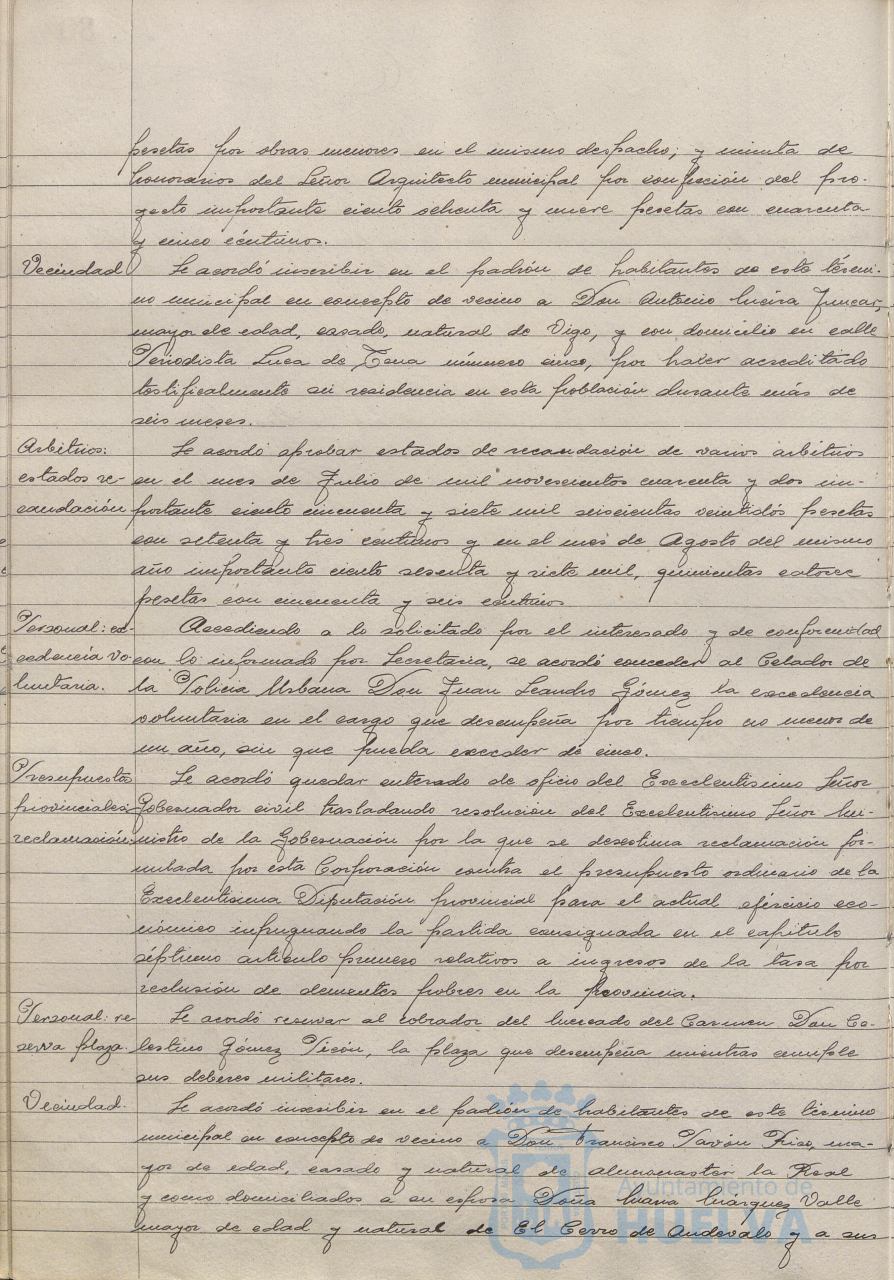 pesetas por obras menores en el mismo despacho; y minuta de
honorarios del Señor Arquitecto municipal por confección del pro-
yecto importante ciento ochenta y nueve pesetas con cuarenta
y cinco céntimos.
Vecindad Se acordó inscribir en el padrón de habitantes de este térmi-
no municipal en concepto de vecino a Don Antonio
mayor de edad, casado, natural de Vigo, y con domicilio en calle
Periodista Luca de Tena número cinco, por haber acreditado
testificalmente su residencia en esta población durante más de
seis meses.
Arbitrios: Se acordó aprobar estados de recaudación de varios arbitrios
estados re- en el mes de Julio de mil novescientos cuarenta y dos im-
caudación portante ciento cincuenta y siete mil seiscientas veintidós pesetas
con setenta y tres centimos y en el mes de Agosto del mismo
año importante ciento sesenta y siete mil, quinientas catorce
pesetas con cincuenta y seis centimos
Personal: ex- Accediendo a lo solicitado por el interesado y de conformidad
cedencia vo- con lo informado por Secretaria, se acordó conceder al Celador de
luntaria. la Policia Urbana Don Juan Leandro Gómez la excedencia
voluntaria en el cargo que desempeña por tiempo no menor de
un año, sin que pueda exceder de cinco.
Presupuestos Se acordó quedar enterado de oficio del Excelentisimo Señor
provinciales: Gobernador civil trasladando resolución del Excelentisimo Señor Mi-
reclamación. nistro de la Gobernación por la que se desestima reclamación for-
mulada por esta Corporación contra el presupuesto ordinario de la
Excelentisima Diputación provincial para el actual ejercicio eco-
nómico impugnando la partida consignada en el capítulo
séptimo articulo primero relativos a ingresos de la tasa por
reclusión de dementes pobres en la Provincia.
Personal: re- Se acordó reservar al cobrador del Mercado del Carmen Don Ce-
serva plaza. lestino Gómez Picón, la plaza que desempeña mientras cumple
sus deberes militares.
Vecindad. Se acordó inscribir en el padrón de habitantes de este término
municipal en concepto de vecino a Don Francisco Pavón Rico, ma-
yor de edad, casado y natural de Almonaster la Real
y como domiciliados a su esposa Doña Maria Márquez Valle
mayor de edad y natural de El Cerro de Andevalo y a sus
Ayuntamiento de
HUELVA